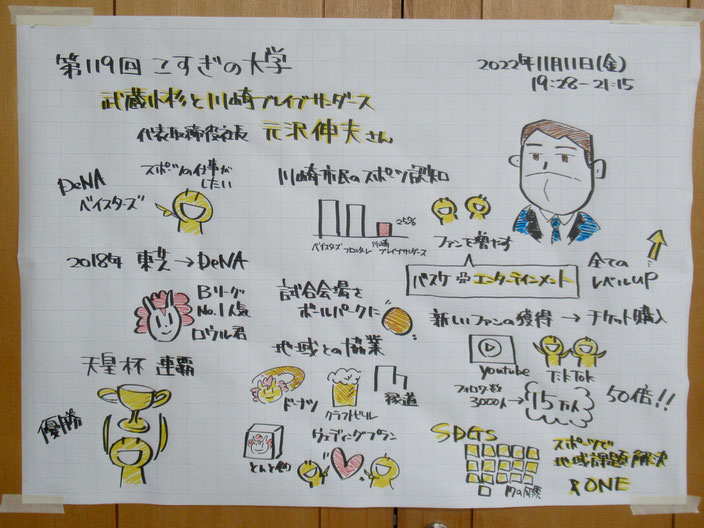 第119回 こすぎの大学
2022年11月11日(金)
19:28-21:15
武蔵小杉と川崎ブレイブサンダース
代表取締役社長 元沢伸夫さん
DeNA
ベイスターズ
スポーツの仕事が
したい
川崎市民のスポーツ認知
25%
ベイスターズ
フロンターレ
川崎
ブレイブサンダース
ファンを増やす
2018年 東芝→DeNA
Bリーグ
No.1人気
ロウル君
試合会場を
ボールパークに
バスケ
エンターテインメント
全ての
レベルUP
新しいファンの獲得 → チケット購入
天皇杯 連覇
優勝
地域との協業
ドーナツ
クラフトビール
ウェディングプラン
youtube
TikTok
フォロワー数
3000人→15万人
50倍!!
SDGS
スポーツで
地域課題解決
&ONE